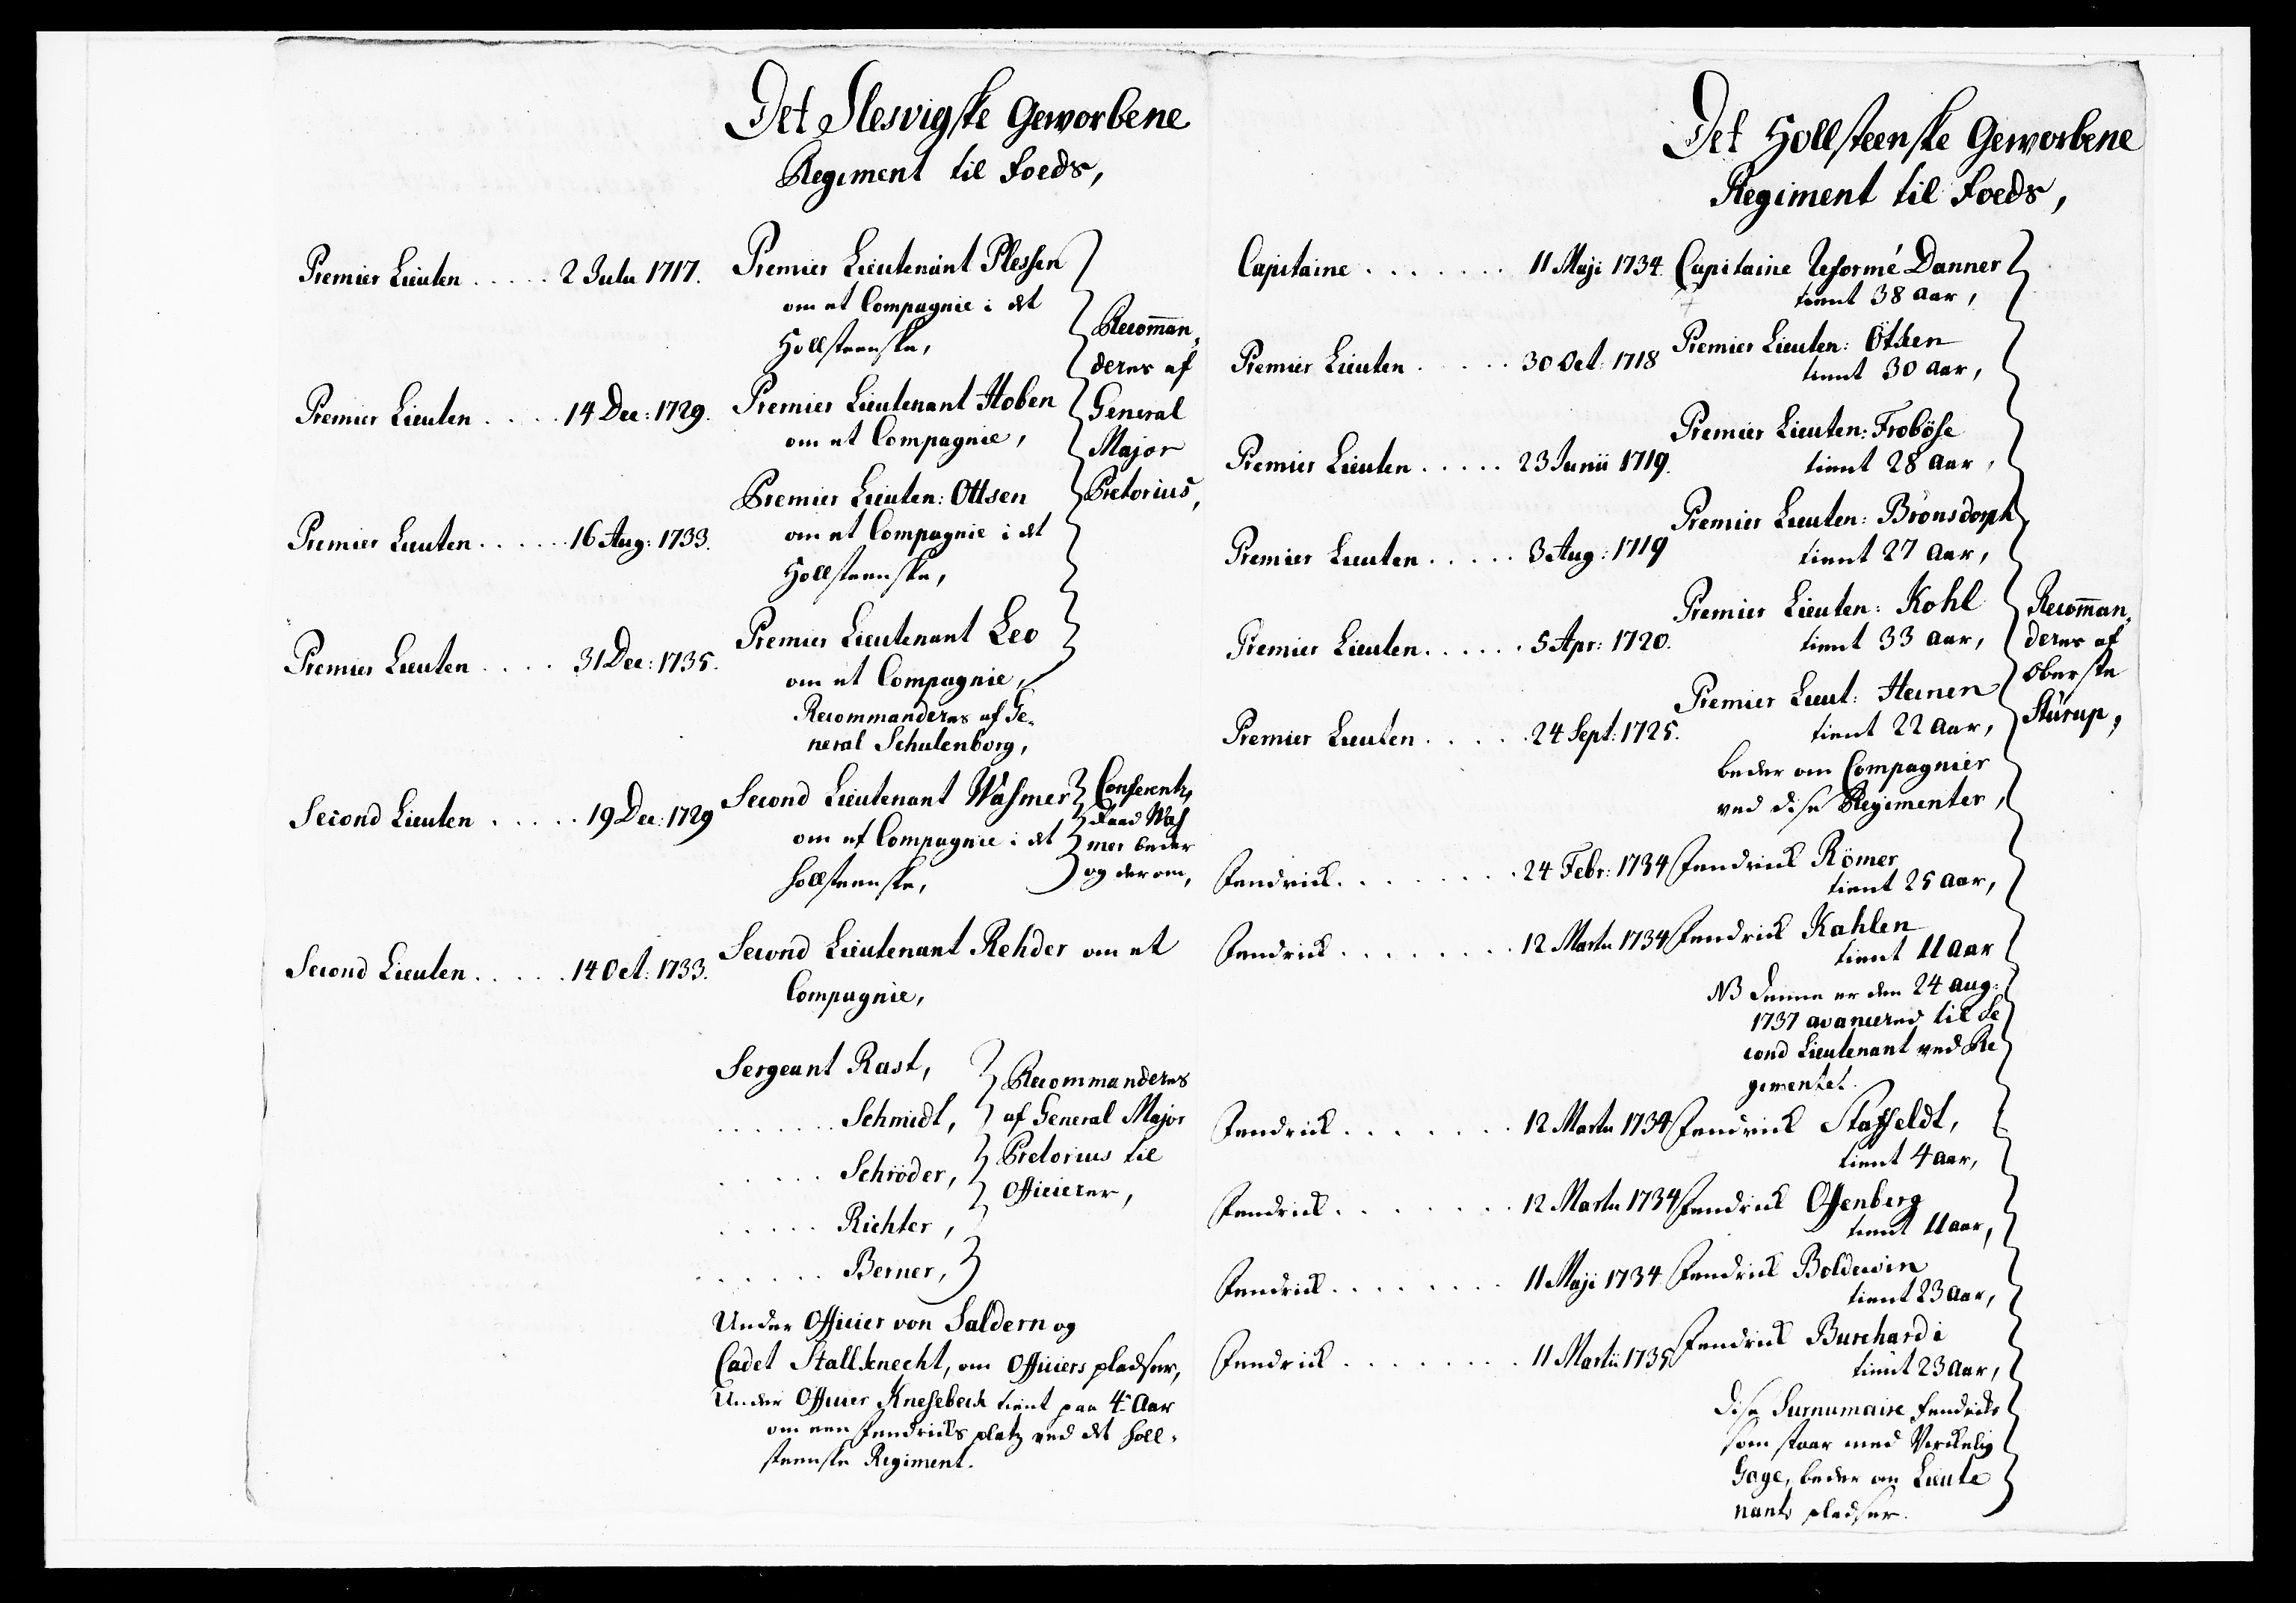 Det Slesvigske Geworbene
Regiment til Foeds,
Premier Lieuten ..... 2 Julii 1717. Premier Lieutenant Plessen
om et Compagnie i det
Hollsteenske,
Premier Lieuten .... 14 Dec: 1729. Premier Lieutenant Hoben
om et Compagnie,
Premier Lieuten ..... 16 Aug: 1733. Premier Lieuten: Ottsen
om et Compagnie i det
Hollsteenske,
Premier Lieuten .... 31 Dec: 1735. Premier Lieutenant Leo
om et Compagnie,
Recom̅an,
deres af
General
Major
Pretorius,
Recommanderes af Ge,
neral Schulenborg,
Second Lieuten ..... 19 Dec: 1729 Second Lieutenant Wasmer
om et Compagnie i det
hollsteenske,
Conferentz,
Raad Was
mer beder
og der om,
Second Lieuten ..... 14 Oct: 1733. Second Lieutenant Rehder om et
Compagnie,
Sergeant Rast,
....... Schmidt,
...... Schröder,
..... Richter,
...... Berner,
Recommanderes
af General Major
Pretorius til
Officierer,
Under Officier von Saldern og
Cadet Stallknecht, om Officiers pladser,
Under Officier Knesebeck tient paa 4 Aar
om een Fendricks platz ved det holl-
steenske Regiment.
Det Hollsteenske Geworbene
Regiment til Foeds,
Capitaine ....... 11 Maji 1734. Capitaine Reformé Danner
tient 38 Aar,
Premier Lieuten ..... 30 Oct: 1718 Premier Lieuten: Ötken
tient 30 Aar,
Premier Lieuten ..... 23 Junii 1719. Premier Lieuten: Froböse
tient 28 Aar,
Premier Lieuten ..... 3 Aug: 1719 Premier Lieuten: Brönsdorph
tient 27 Aar,
Premier Lieuten ..... 5 Apr: 1720. Premier Lieuten: Kohl
tient 33 Aar,
Premier Lieuten ..... 24 Sept: 1725. Premier Lieut: Heinen
tient 22 Aar,
beder om Compagnier
ved dise Regimenter,
Recom̅an,
deres af
Oberste
Stürup,
Fendrick ........ 24 Febr: 1734 Fendrick Römer
tient 25 Aar,
Fendrick ........ 12 Martii 1734 Fendrick Kahlen
tient 11 Aar
NB Denne er den 24 Aug:
1737 avancered til Se
cond Lieutenant ved Re
gimentet.
Fendrick ....... 12 Martii 1734 Fendrick Staffeldt,
tient 4 Aar,
Fendrick ....... 12 Martii 1734 Fendrick Offenberg
tient 11 Aar,
Fendrick ....... 11 Maji 1734 Fendrick Boldewin
tient 23 Aar,
Fendrick ....... 11 Martii 1735 Fendrick Burchardi
tient 23 Aar,
Dise Surnumaire Fendricks
som staar med Verckelig
Gage, beder om Lieute
nants pladser.